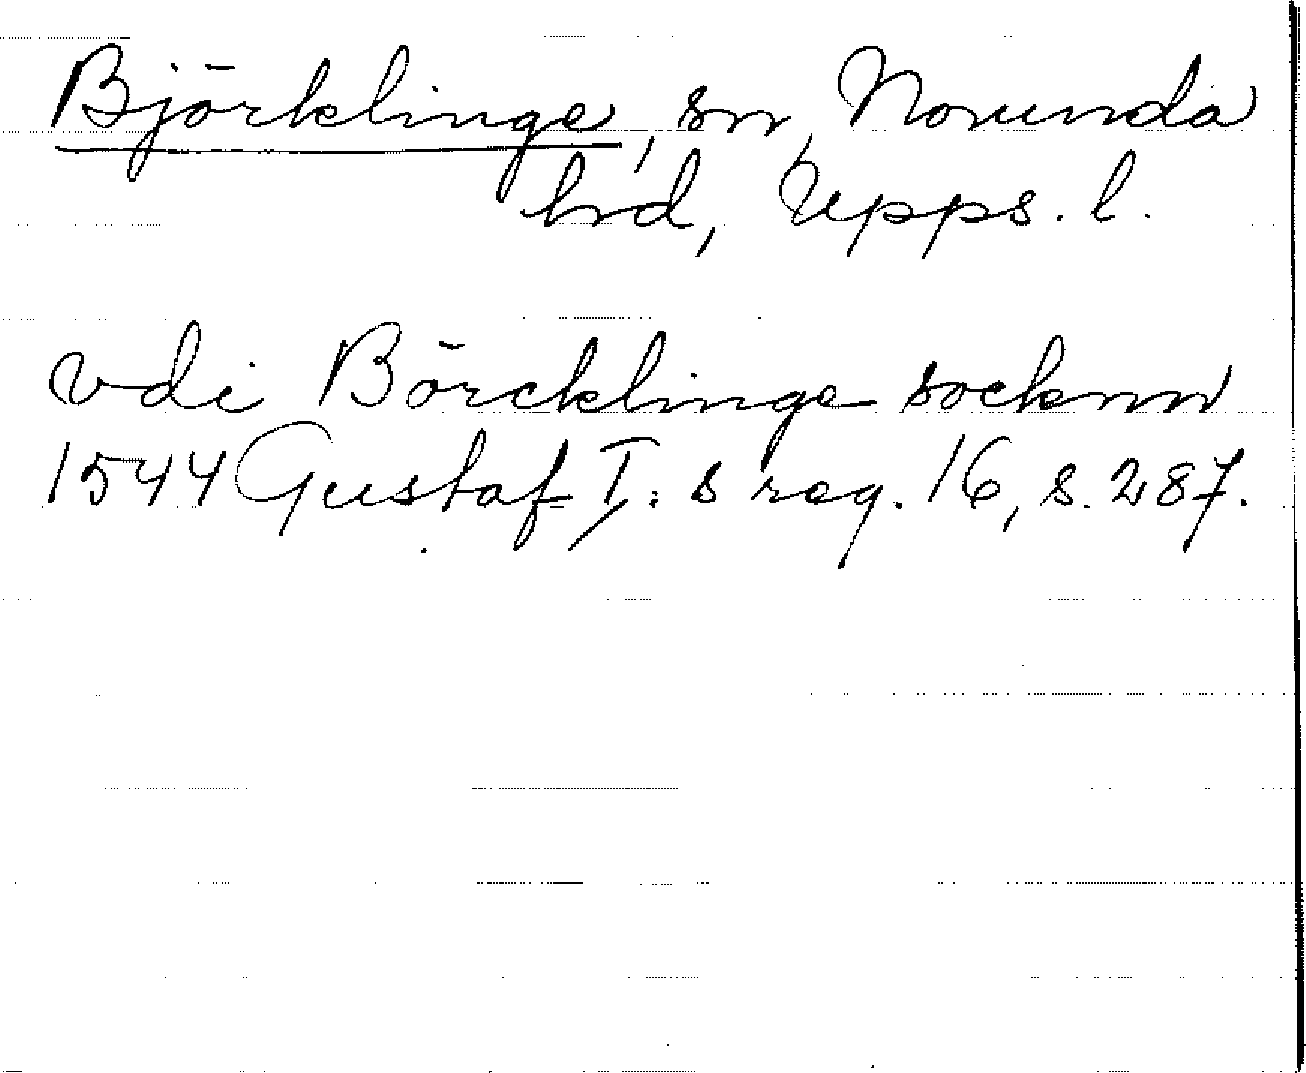 Björklinge, sn, Norunda
hrd, Upps. l.
vdi Börcklinge socknn
1544 Gustaf I:s reg. 16, s. 287.